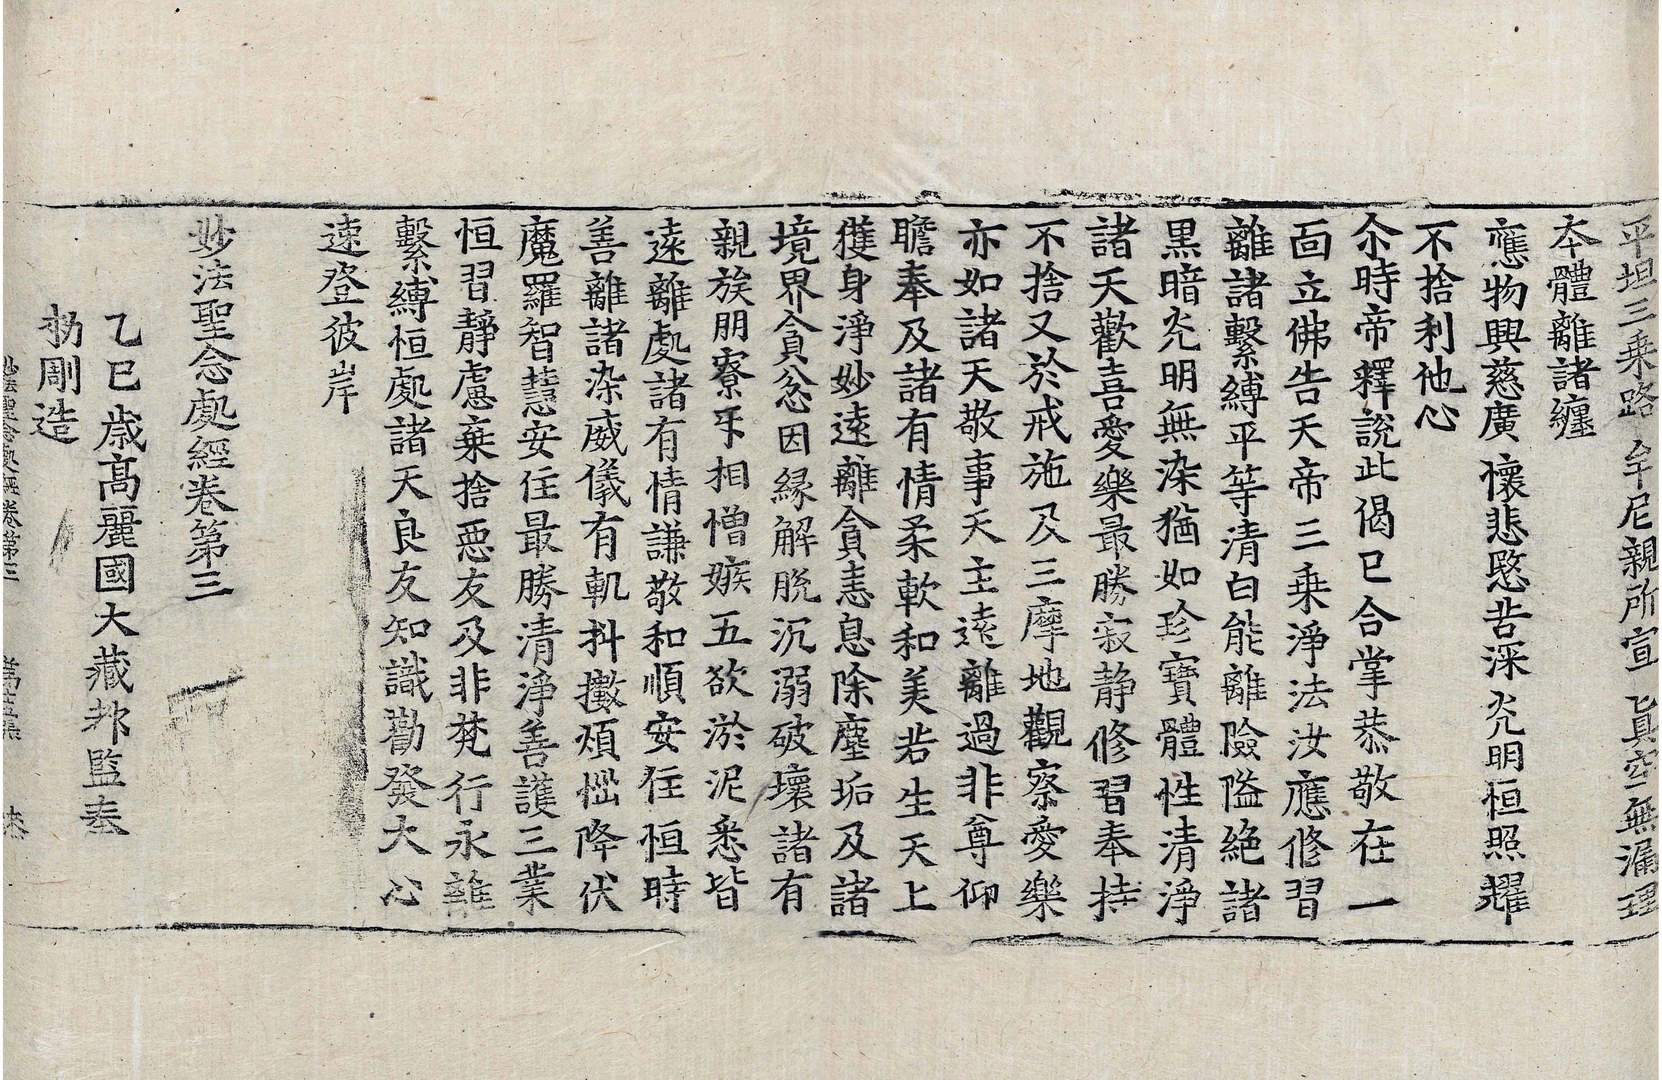 平坦三乗路　牟尼親所宣　已眞空無漏理
本體離諸纏
應物興慈廣　懷悲愍苦深　光明恒照耀
不捨利他心
尒時帝釋說此偈已合掌恭敬在一
面立佛告天帝三乗淨法汝應修習
離諸繫縛平等清白能離險隘絶諸
黒暗光明無染猶如珍寶體性清淨
諸天歡喜愛樂最勝寂静修習奉持
不捨又於戒施及三摩地觀察愛樂
亦如諸天敬事天主遠離過非尊仰
瞻奉及諸有情柔軟和美若生天上
獲身淨妙遠離貪恚息除塵垢及諸
境界貪忿因縁解脫沉溺破壞諸有
親族朋寮乐相憎嫉五欲淤泥悉皆
遠離處諸有情謙敬和順安住恒時
善離諸染威儀有軌抖擻煩惱降伏
魔羅智慧安住最勝清淨善護三業
恒習靜慮棄捨惡友及非梵行永離
繫縛恒處諸天良友知識勸發大心
速登彼岸
妙法聖念處經卷第三
乙巳歳髙麗國大藏都監奉
勑彫造
妙法聖念處經卷第三　第五張